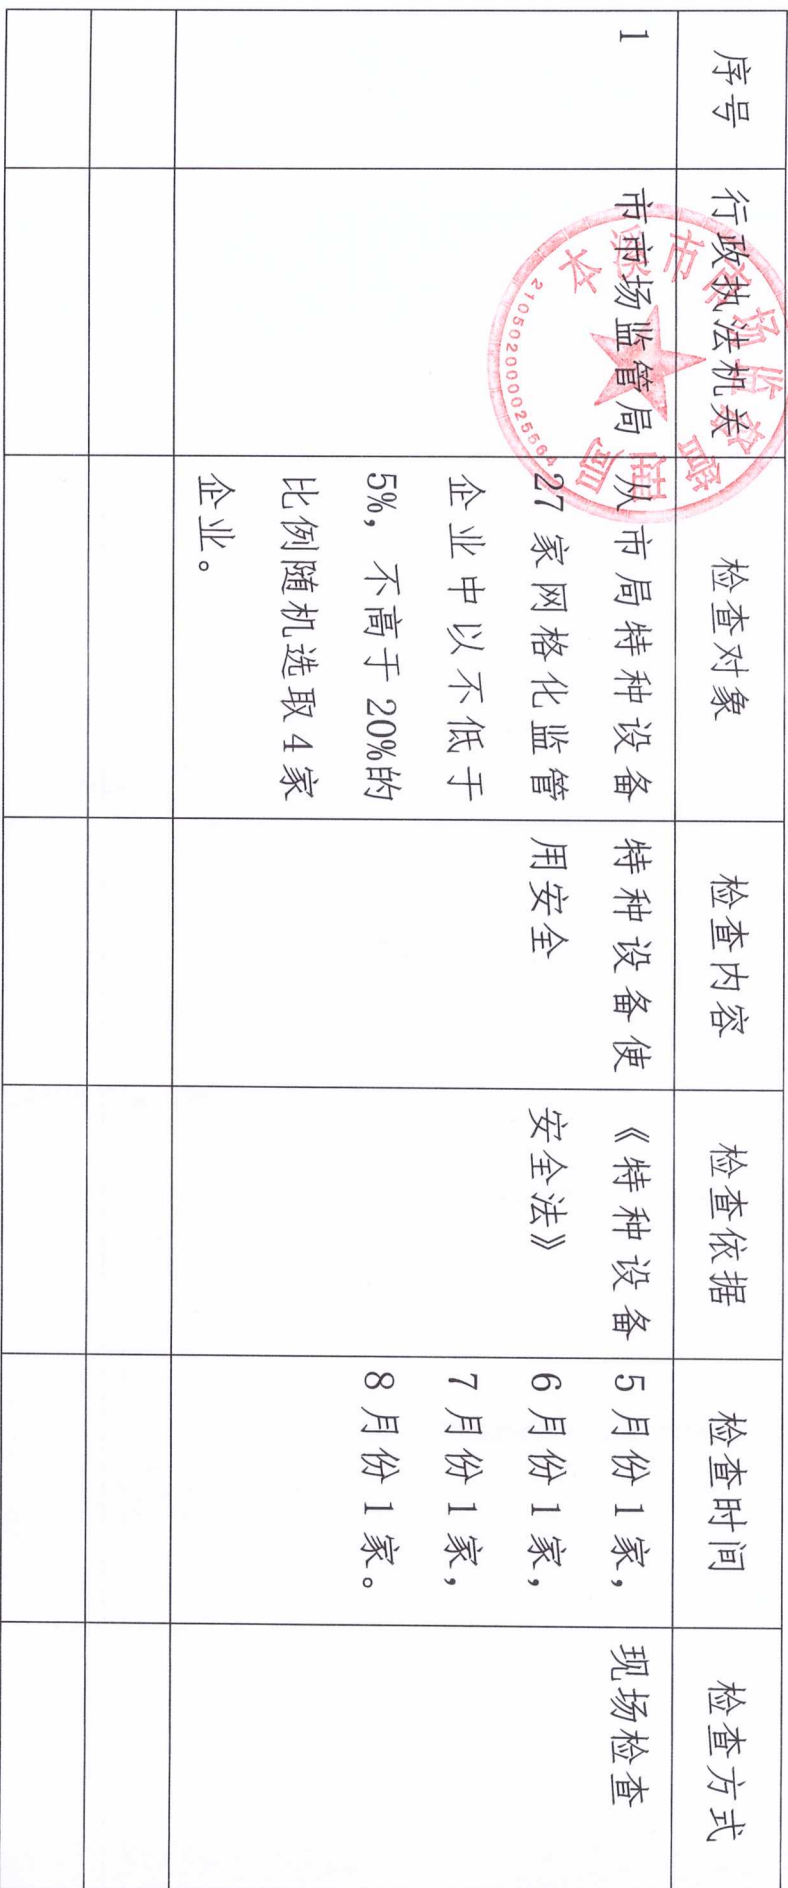 序号
行政执法机关
检查对象
检查内容
检查依据
检查时间
检查方式
1
市市场监管局
从市局特种设备
27家网格化监管
企业中以不低于
5%，不高于20%的
比例随机选取4家
企业。
特种设备使
用安全
《特种设备
安全法》
5月份1家，
6月份1家，
7月份1家，
8月份1家。
现场检查
本溪市市场监督管理局
2105020000025564